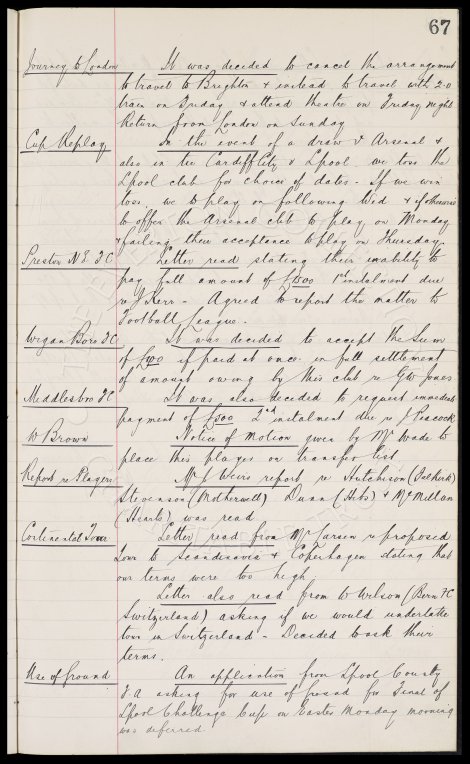 67
Journey to London It was decided to cancel the arrangement
to travel to Brighton & instead to travel with 2-0
train on Friday & attend theatre on Friday night
Return from London on Sunday
Cup Replay In the event of a draw v Arsenal &
also in the Cardiff City v Lpool we toss the
Lpool club for choice of dates - If we win
toss. we to play on following Wed & if otherwise
to offer the Arsenal club to play on Monday
& failing their acceptance to play on Thursday.
Preston N E. FC Letter read stating their inability to
pay full amount of £1500 1st instalment due
re J Kerr - Agreed to report the matter to
Football League.
Wigan Boro FC It was decided to accept the sum
of if paid at once in full settlement
of amount owing by this club re GW Jones
Middlesbro FC It was also decided to request immediate
payment of £500 2nd instalment due re J Peacock
W Brown Notice of Motion given by Mr Wade to
place this player on transfer list
Report re Players Mr J Weirs report re Hutchison (Falkirk)
Stevenson (Motherwell) Dunn (Hibs) & McMillan
(Hearts) was read
Continental Tour Letter read from Mr Larsen re proposed
Tour to Scandinavia & Copenhagen stating that
our terms were too high
Letter also read from W Wilson (Bern FC
Switzerland) asking if we would undertake
tour in Switzerland - Decided to ask their
terms.
Use of Ground An application from Lpool County
F.A asking for use of ground for Final of
Lpool Challenge Cup on Easter Monday morning
was deferred.